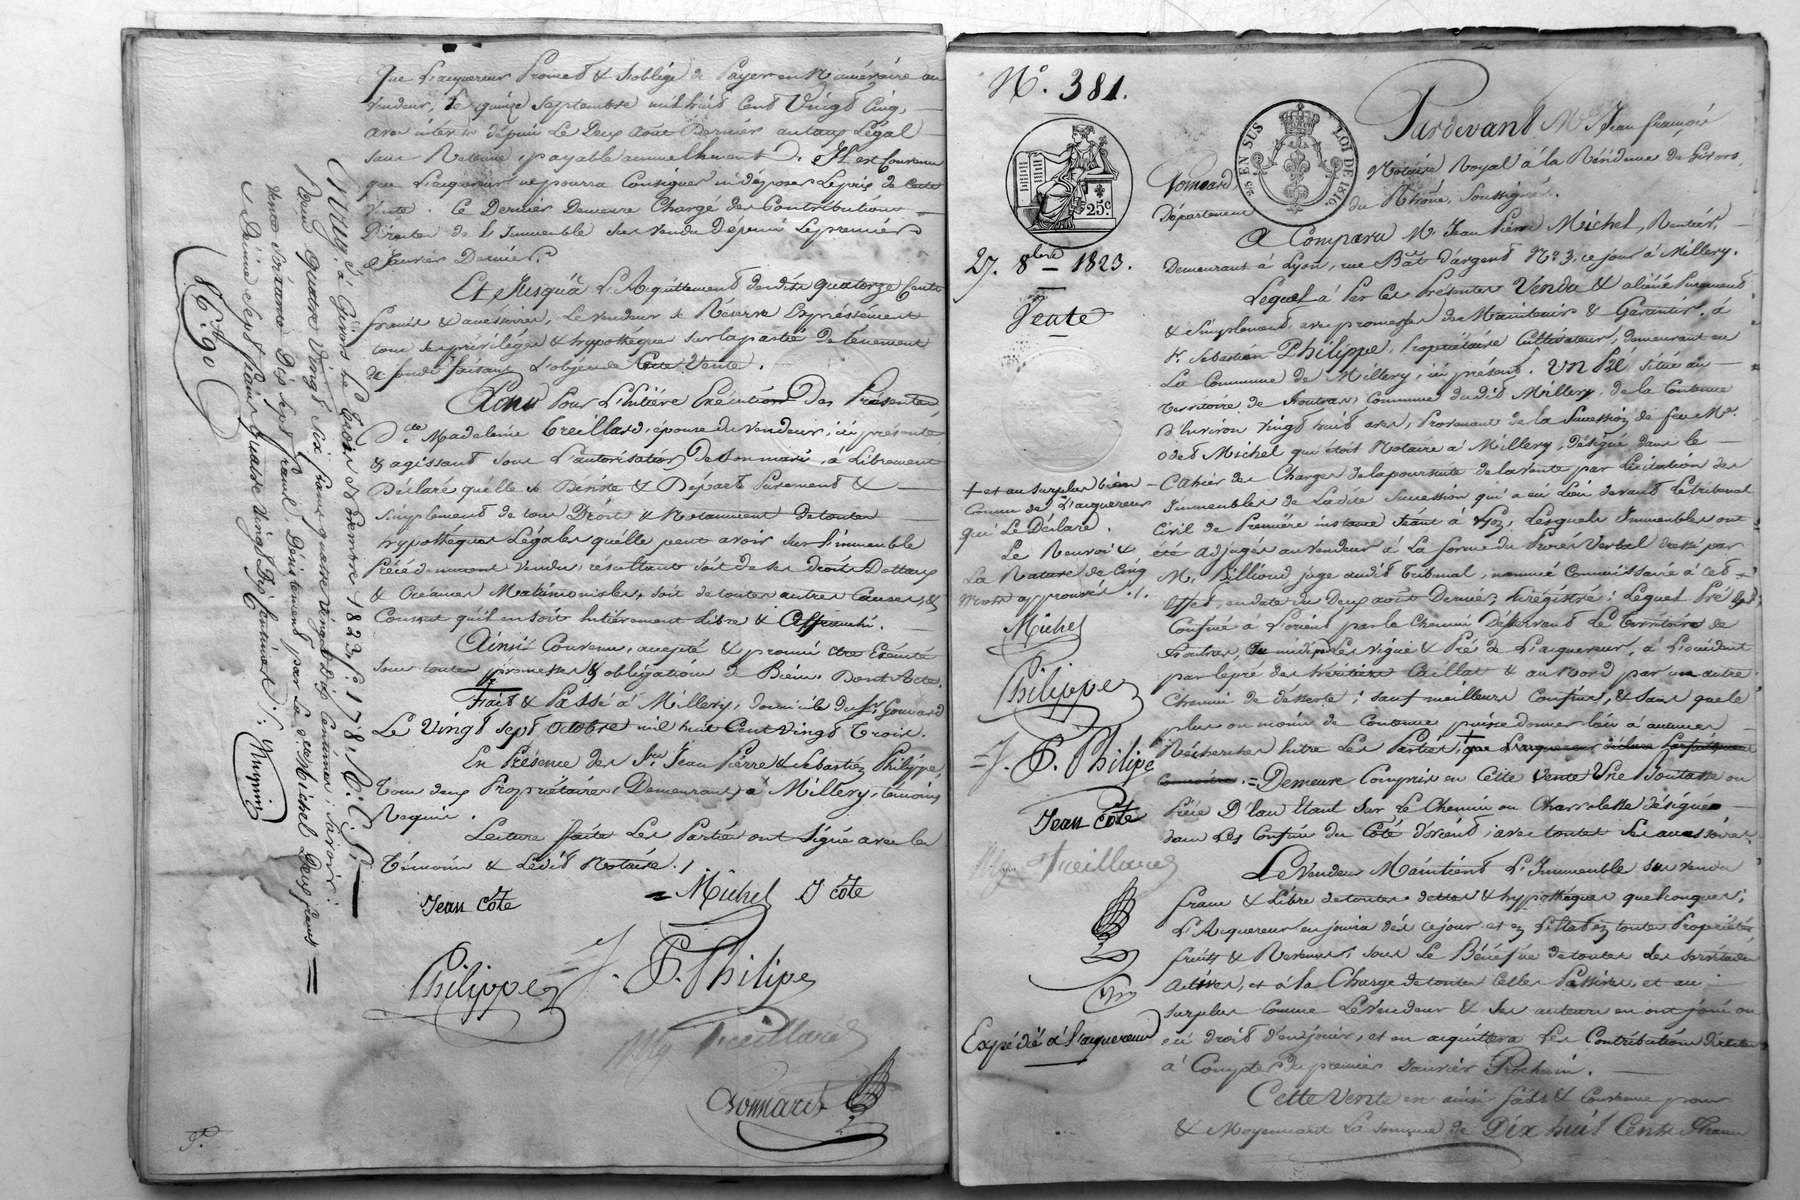 que L'acquereur Promet & S'oblige de Payer en Numéraire au
vendeur, le quinze Septembre mil huit Cent Vingt Cinq,
avec intérêts depuis Le Deux Août Dernier au taux Légal
sans Retenue, payable annuellement. Il est Convenu
que L'acquereur ne pourra Consigner ni déposer Le prix de cette
Vente. Ce Dernier Demeure Chargé des Contributions
Directes de L'Immeuble Sus vendu Depuis Le premier
Janvier Dernier.
Et Jusqu'à L'Acquittement desdits quatorze Cents
francs & accessoires, Le vendeur se Réserve Expressément
tous ses privilèges & hypothèques sur la partie de tenement
de fonds faisant L'objet de Cette Vente.
Pour L'Entière Exécution Des Présentes,
Madeleine Treillard, épouse du vendeur, ici présente
& agissant sous L'autorisation De Son mari, a Librement
Déclaré qu'elle se Désiste & Départ Purement &
simplement de tous Droits & Notamment de toutes
hypothèques Légales qu'elle peut avoir sur l'immeuble
Précédemment vendu, résultant soit de ses droits Dotaux
& Créances Matrimoniales, soit de toutes autres Causes, &
Consent qu'il en soit Entièrement Libre & Affranchi.
Ainsi Convenu, accepté & promis être Exécuté
sous toutes promesses & obligations de Biens. Dont Acte.
Fait & Passé à Millery, domicile du Sr. Gonnard
Le Vingt sept Octobre mil huit Cent Vingt Trois.
En Présence des Srs. Jean Pierre & Sebastien Philippe,
Tous deux Propriétaires Demeurant à Millery, témoins
Requis.
Lecture faite Les Parties ont Signé avec les
Témoins & Ledit Notaire./
Jean Côte = Michel J Côte
Philippe J. P. Philipe
Mg Treillard
Gonnard
Enreg. à Givors Le Trois Novembre 1823, f. 178, R. C.
Reçu Quatre Vingt Six francs quatre Vingt Dix Centimes, Savoir:
Vente Soixante Dix Sept francs, Désistement par La d. Michel Deux francs
Dixième Sept francs quatre Vingt Dix Centimes.
86 f. 90
N°. 381.
25 EN SUS LOI DE 1816.
25c
27. 8bre 1823.
Vente
Pardevant Me. Jean françois
Gonnard Notaire Royal à la Résidence de Givors,
Département du Rhône, Soussigné.
A Comparu M. Jean Pierre Michel, Rentier,
Demeurant à Lyon, rue Bât d'argent N° 3. ce jour à Millery.
Lequel a Par Ces Présentes Vendu & aliéné Purement
& Simplement avec promesses de Maintenir & Garantir, à
Sr. Sebastien Philippe, Propriétaire Cultivateur, demeurant en
La Commune de Millery, ici présent. Un Pré Situé au
territoire de Commune dudit Millery, de la Contenue
d'Environ vingt huit ares, Provenant de la Succession de feu Me.
Michel qui étoit Notaire à Millery, désigné dans le
Cahier des Charges de la poursuite de la vente par Licitation des
Immeubles de Ladite Succession qui a eu Lieu devant Le tribunal
Civil de Première instance Séant à Lyon, Lesquels Immeubles ont
été adjugés au vendeur à La forme du Procès Verbal dressé par
M. juge audit Tribunal, nommé Commissaire à cet
Effet, en date du Deux août Dernier, Enregistré: Lequel Pré
Confiné à L'orient par le Chemin Desservant Le territoire de
au midi par les vigne & Pré de L'acquereur, à L'occident
par le pré des héritiers Caillat & au Nord par un autre
Chemin de desserte; sauf meilleurs Confins, & sans que le
plus ou moins de Contenue puisse donner lieu à aucunes
Recherches Entre Les Parties, + que L'acquereur déclare parfaitement
Connoître. = Demeure Compris en Cette vente Une ou
d'Eau Etant Sur Le Chemin ou Charrolette désignée
dans Les Confins du Côté d'orient, avec toutes Ses aisances.
Le Vendeur Maintient L'Immeuble Sus vendu
franc & Libre de toutes dettes & hypothèques quelconques;
L'Acquereur en jouira dès ce jour, et en Percevra toutes Propriétés,
fruits & Revenus, sous Le Bénéfice de toutes Les servitudes
Actives, et à la Charge de toutes Celles Passives, et au
surplus Comme Le Vendeur & Ses auteurs en ont joui ou
eu droit d'en jouir, et en acquittera Les Contributions directes
à Compter du premier Janvier Prochain.
Cette Vente est ainsi faite & Convenue pour
& Moyennant La Somme de Dix huit Cents francs
+ et au surplus bien
Connu de L'acquereur
qui Le Déclare.
Le Renvoi &
La Rature de Cinq
Mots approuvés./.
Michel
Philippe
= J. P. Philipe
Jean Côte
Mg Treillard
Expédié à l'acquereur